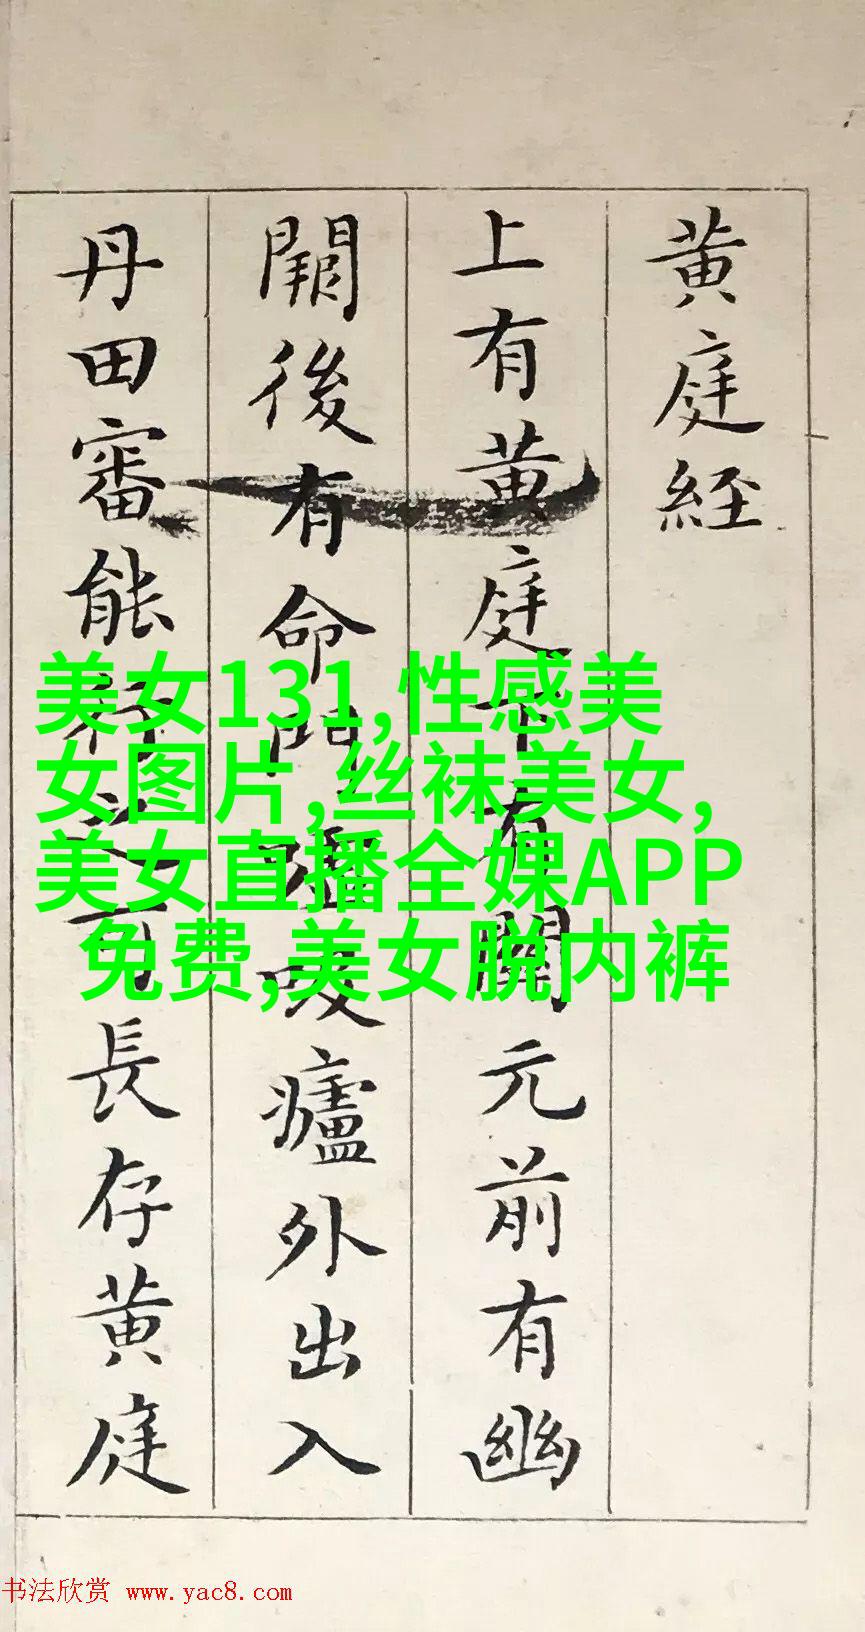 黄庭經
上有黄庭下有關元前有幽
闕後有命門嘘吸廬外出入
丹田審能行之可長存黄庭
美女131,性感美
女图片,丝袜美女,
美女直播全婐APP
免费,美女脱内裤
书法欣赏 www.yac8.com